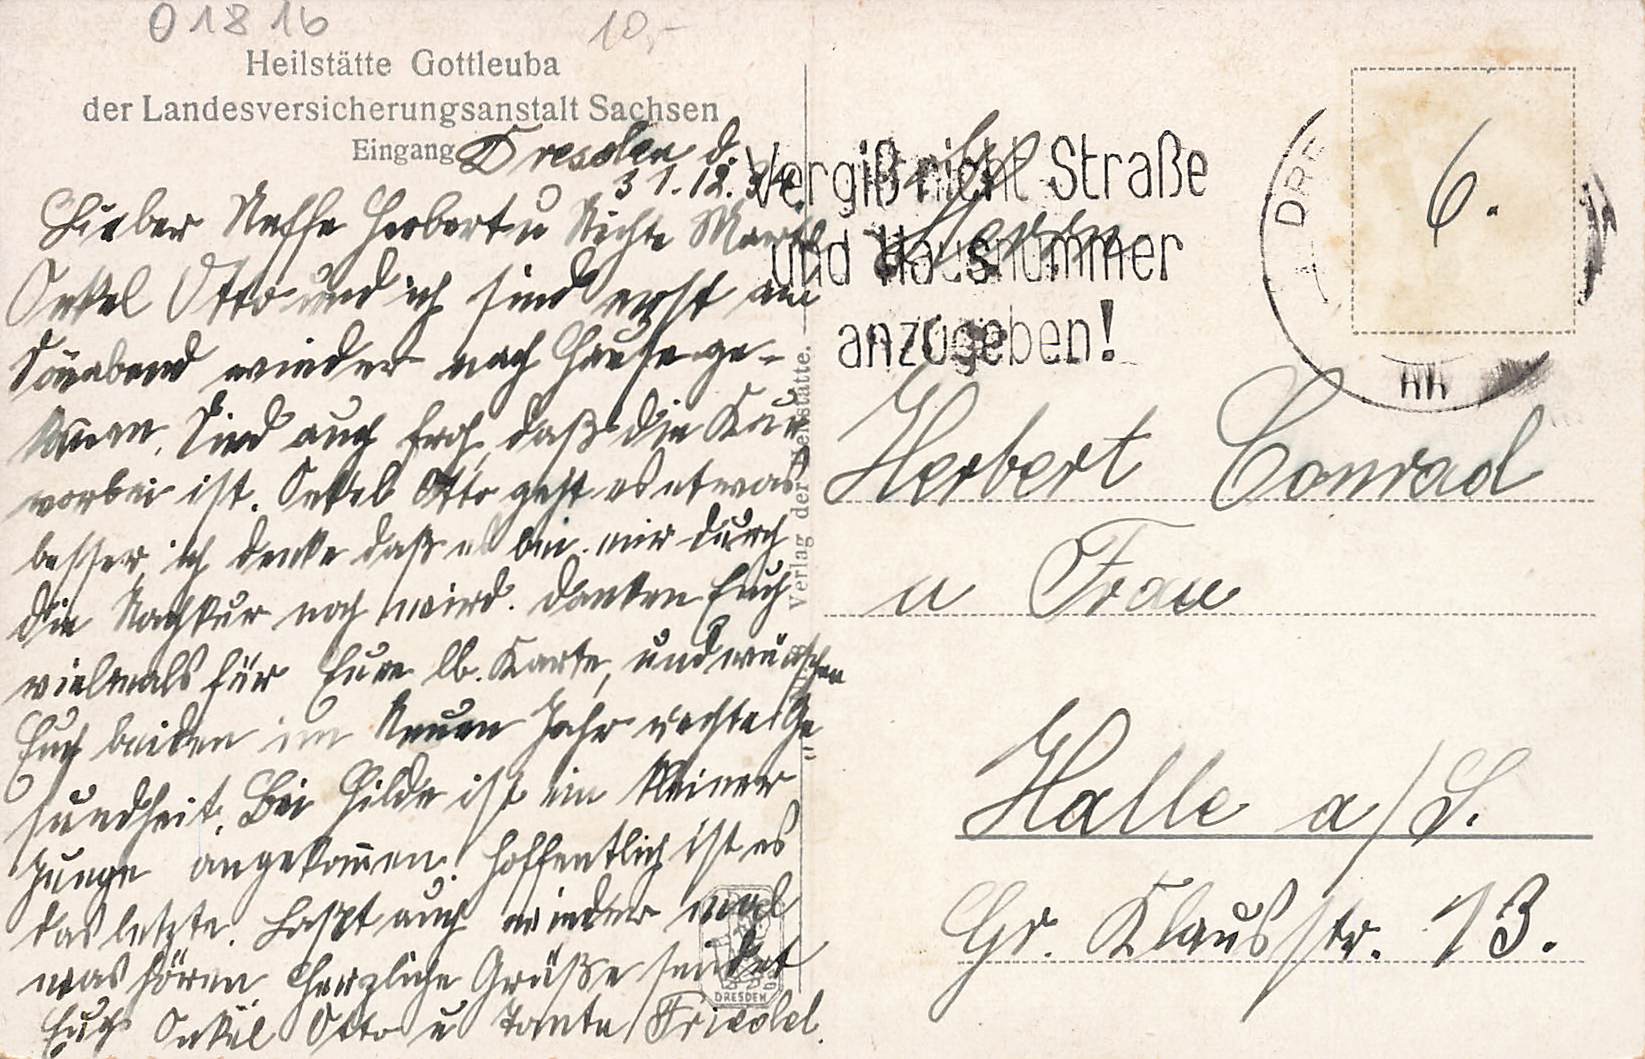 01816
10,-
Heilstätte Gottleuba
der Landesversicherungsanstalt Sachsen
Eingang
Dresden d.
31.12.34.
Lieber Neffe Herbert u Nichte
Onkel Otto und ich sind erst am
Sonabend wieder nach Hause ge-
komen. Sind auch froh, daß die Kur
vorbei ist. Onkel Otto geht es etwas
besser, ich denke daß es bei mir durch
die Nachkur noch wird. Danken Euch
vielmals für Eure lb. Karte, und wünschen
Euch beiden im Neuen Jahr rechte Ge
sundheit. Bei Hilde ist ein kleiner
Junge angekomen. Hoffentlich ist es
das letzte. Laßt auch wieder mal
was hören Herzliche Grüße sendet
Euch Onkel Otto u Tante Friedel.
Verlag der Heilstätte.
DRESDEN
Vergiß nicht Straße
und Hausnummer
anzugeben!
DRE
6.
Herbert Conrad
u Frau
Halle a/S.
Gr. Klausstr. 13.